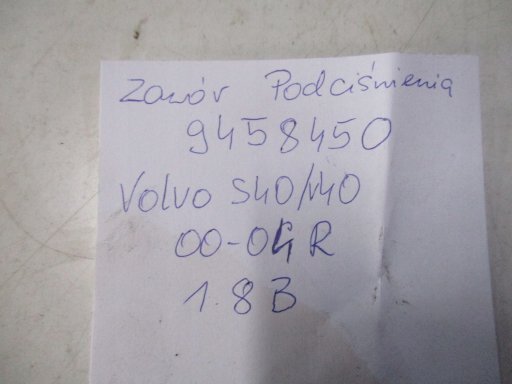 Zawór Podciśnienia
9458450
Volvo S40/V40
00-04R
1.8B